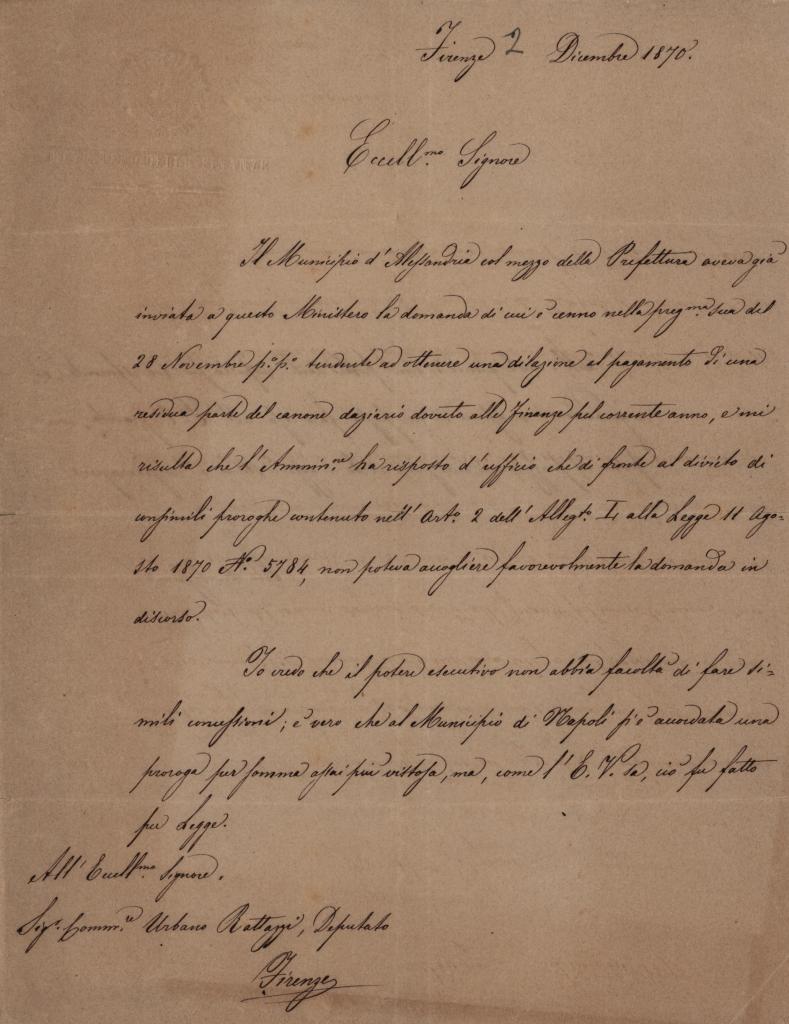 Firenze 2 Dicembre 1870.
Eccell.mo Signore
Il Municipio d'Alessandria col mezzo della Prefettura aveva già
inviata a questo Ministero la domanda di cui è cenno nella preg.ma sua del
28 Novembre p.o p.o tendente ad ottenere una dilazione al pagamento di una
residua parte del canone daziario dovuto alle Finanze pel corrente anno, e mi
risulta che l'Ammin.ne ha risposto d'ufficio che di fronte al divieto di
consimili proroghe contenuto nell'Art.o 2 dell'Alleg.to L, alla Legge 11 Ago-
sto 1870 N.o 5784, non poteva accogliere favorevolmente la domanda in
discorso.
Io credo che il potere esecutivo non abbia facoltà di fare si-
mili concessioni; è vero che al Municipio di Napoli si è accordata una
proroga per somma assai più vistosa, ma, come l'E. V. sa, ciò fu fatto
per Legge.
All'Eccell.mo Signore.
Sig.r Comm.re Urbano Rattazzi, Deputato
Firenze